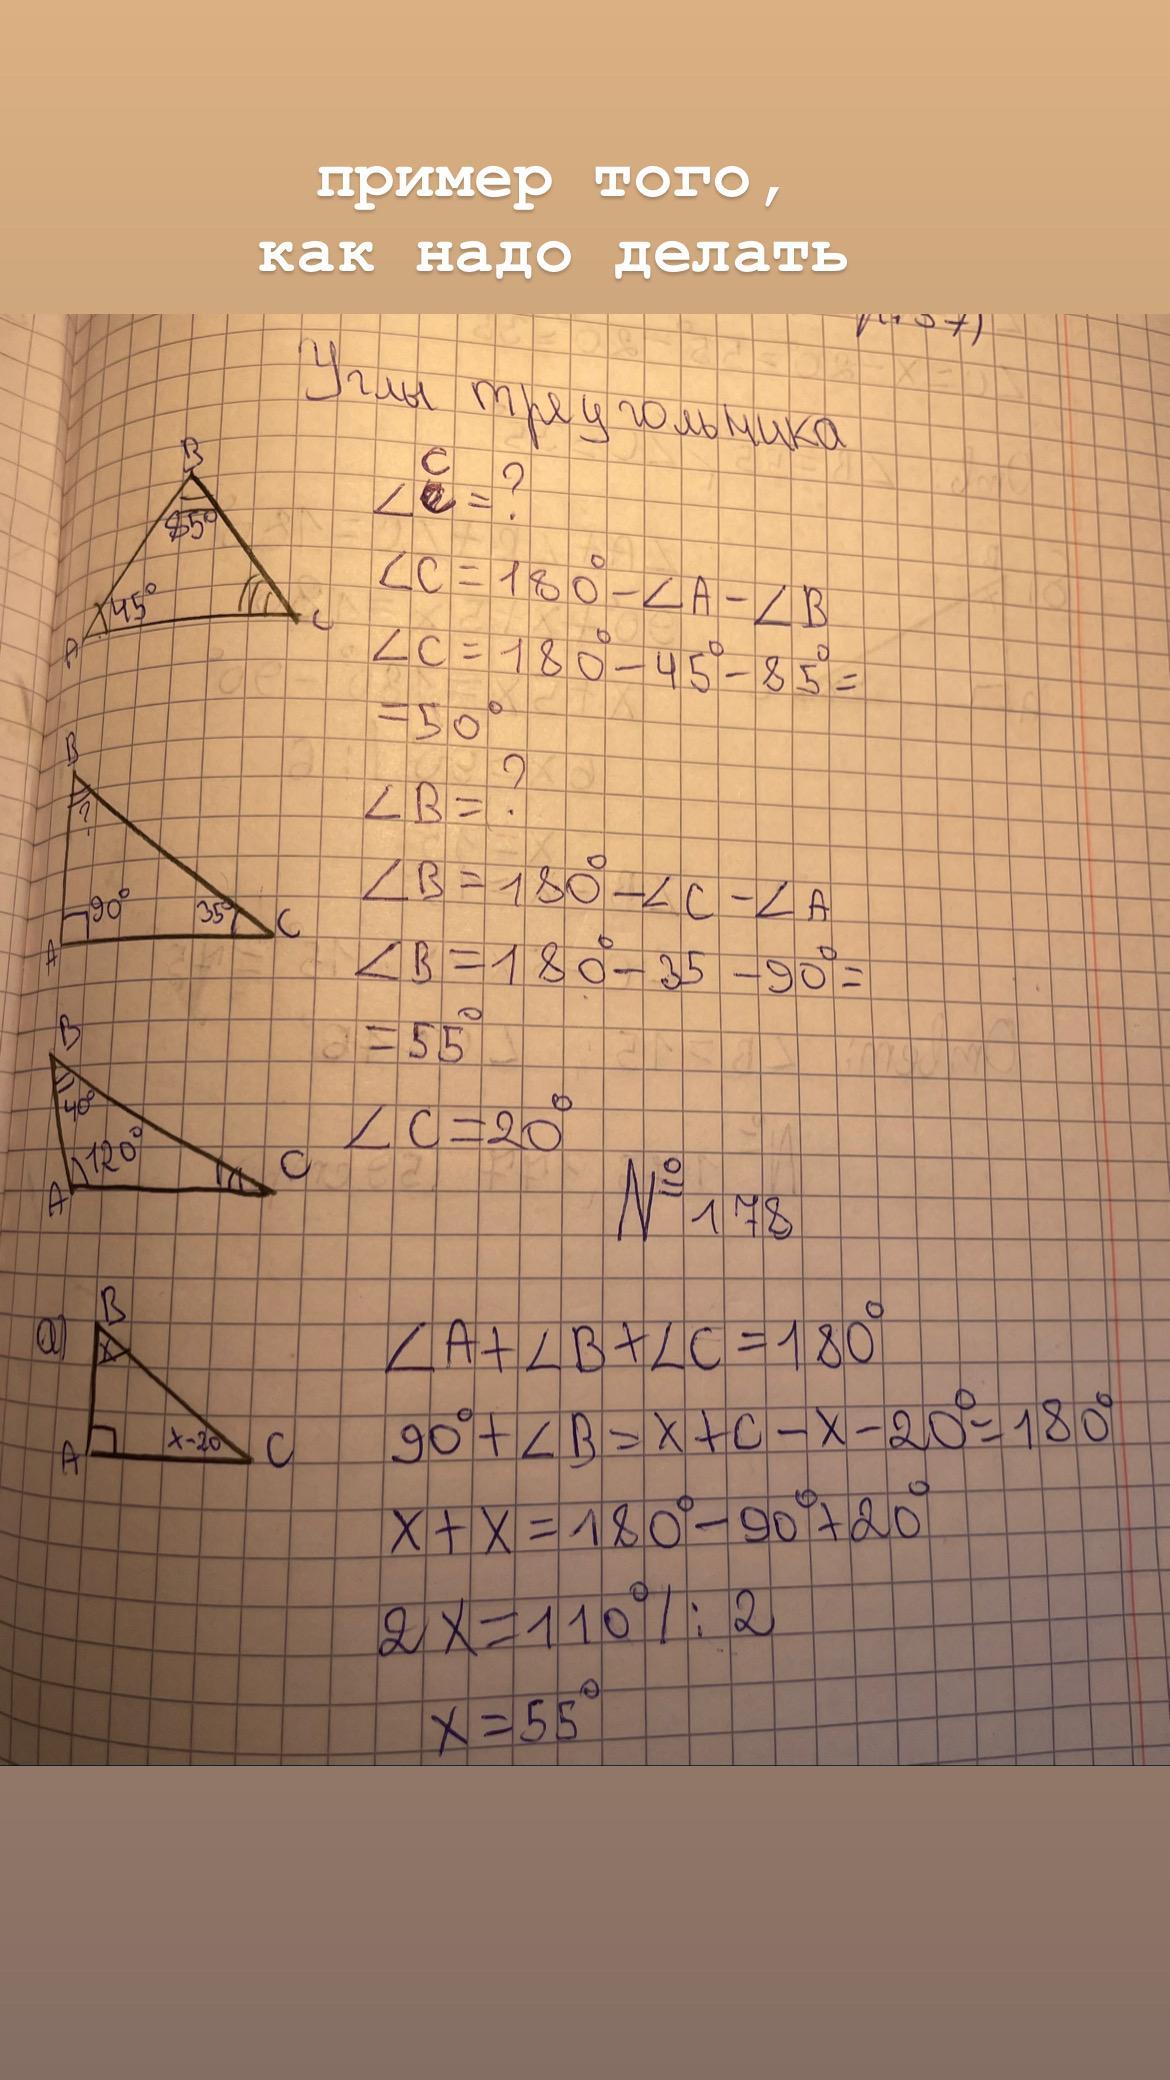 пример того,
как надо делать
Углы треугольника
B
85°
45°
A
C
C
∠C=?
∠C=180°-∠A-∠B
∠C=180°-45°-85°=
=50°
B
?
90°
35°
A
C
∠B=?
∠B=180°-∠C-∠A
∠B=180°-35-90°=
=55°
B
40°
120°
A
C
∠C=20°
№178
а)
B
x
A
x-20
C
∠A+∠B+∠C=180°
90°+∠B=x+C-x-20°=180°
x+x=180°-90°+20°
2x=110°/:2
x=55°